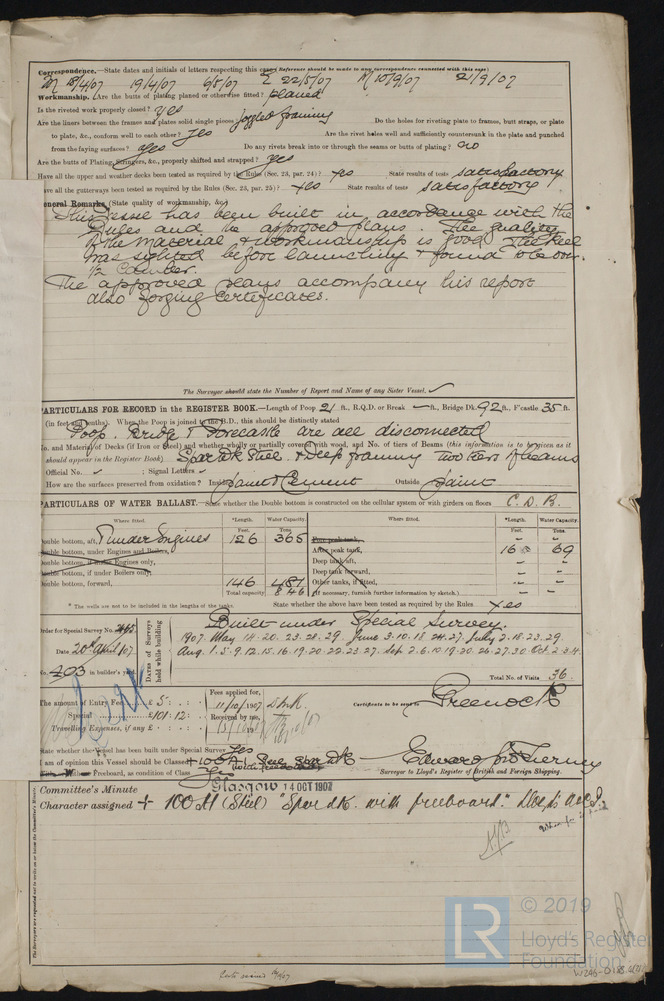 Correspondence.—State dates and initials of letters respecting this case (Reference should be made to any correspondence connected with this case)
18/4/07 19/4/07 6/5/07 22/5/07 10/9/07 21/9/07
Workmanship. Are the butts of plating planed or otherwise fitted? planed
Is the riveted work properly closed? yes
Are the liners between the frames and plates solid single pieces? joggled framing Do the holes for riveting plate to frames, butt straps, or plate
to plate, &c., conform well to each other? yes Are the rivet holes well and sufficiently countersunk in the plate and punched
from the faying surfaces? yes Do any rivets break into or through the seams or butts of plating? no
Are the butts of Plating, Stringers, &c., properly shifted and strapped? yes
Have all the upper and weather decks been tested as required by the Rules (Sec. 23, par. 24)? yes State results of tests satisfactory
have all the gutterways been tested as required by the Rules (Sec. 23, par. 25)? yes State results of tests satisfactory
General Remarks (State quality of workmanship, &c.)
This vessel has been built in accordance with the
Rules and the approved plans. The quality
of the material & workmanship is good. The keel
was sighted before launching & found to be
The approved plans accompany this report
also forging certificates.
The Surveyor should state the Number of Report and Name of any Sister Vessel.
PARTICULARS FOR RECORD in the REGISTER BOOK.—Length of Poop 21 ft., R.Q.D. or Break — ft., Bridge Dk. 92 ft., F'castle 35 ft.
(in feet and tenths). When the Poop is joined to the B.D., this should be distinctly stated
Poop. Bridge & Forecastle are all disconnected
No. and Material of Decks (if Iron or Steel) and whether wholly or partially covered with wood, and No. of tiers of Beams (this information is to be given as it
should appear in the Register Book). Spar dk Steel. & Deep framing Two tiers of beams
Official No. ; Signal Letters
How are the surfaces preserved from oxidation? Inside Paint & Cement Outside Paint
PARTICULARS OF WATER BALLAST.—State whether the Double bottom is constructed on the cellular system or with girders on floors C. D. B.
Where fitted. *Length. Water Capacity. Where fitted. *Length. Water Capacity.
Feet. Tons. Feet. Tons.
Double bottom, aft, & under Engines 126 365 Fore peak tank, — —
Double bottom, under Engines and Boilers, After peak tank, 16 69
Double bottom, if under Engines only, Deep tank, aft, — —
Double bottom, if under Boilers only, Deep tank, forward, — —
Double bottom, forward, 146 481 Other tanks, if fitted, — —
Total capacity 846 (If necessary, furnish further information by sketch.)
* The wells are not to be included in the lengths of the tanks. State whether the above have been tested as required by the Rules yes
Order for Special Survey No.
Date 20th April /07
No. 203 in builder's yard
Dates of Surveys held while building
Built under Special Survey.
1907. May 14. 20. 23. 28. 29. June 3. 10. 18. 24. 27. July 2. 18. 23. 29.
Aug. 1. 5. 9. 12. 15. 16. 19. 20. 22. 23. 27. Sep 2. 6. 10. 19. 20. 26. 27. 30. Oct 2. 3. 4.
Total No. of Visits 36
The amount of Entry Fee £ 5 : :
Special £101 : 12 :
Travelling Expenses, if any £ : :
Fees applied for,
11/10/1907
Received by me,
Certificate to be sent to Greenock
State whether the Vessel has been built under Special Survey Yes
I am of opinion this Vessel should be Classed + 100A1 Steel Spar dk
with freeboard
With Freeboard, as condition of Class Yes
Surveyor to Lloyd's Register of British and Foreign Shipping.
Committee's Minute Glasgow 14 OCT 1907
Character assigned + 100 A1 (Steel) "Spar dk. with freeboard"
The Surveyors are requested not to write on or below the Committee's Minute.
© 2019
LR
Lloyd's Register
Foundation